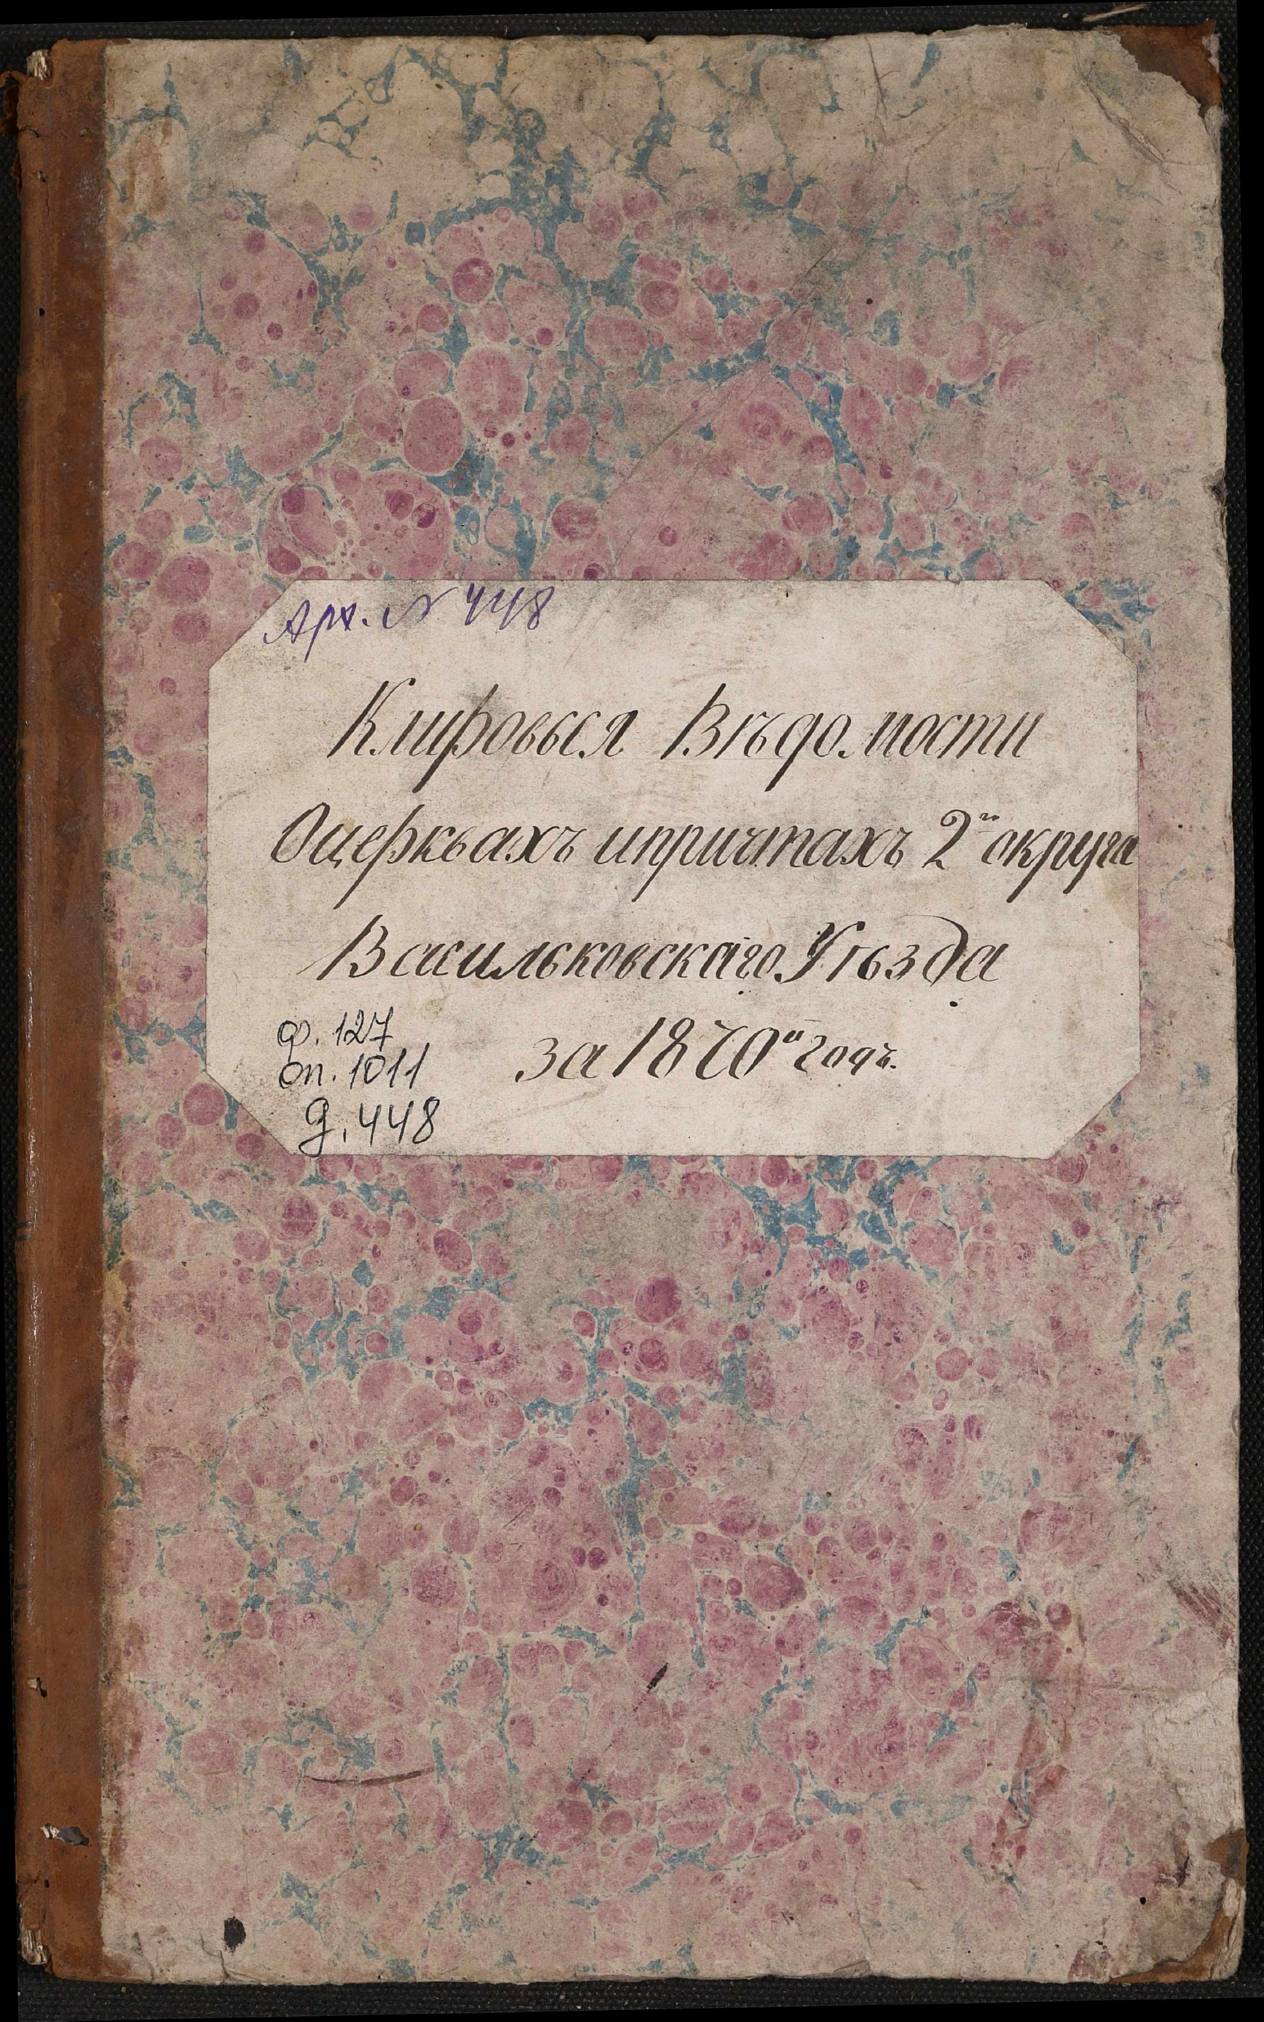 Арх. № 448
Клировыя Вѣдомости
О церквахъ и причтахъ 2го округа
Васильковскаго Уѣзда
за 1870й годъ.
ф. 127
оп. 1011
д. 448